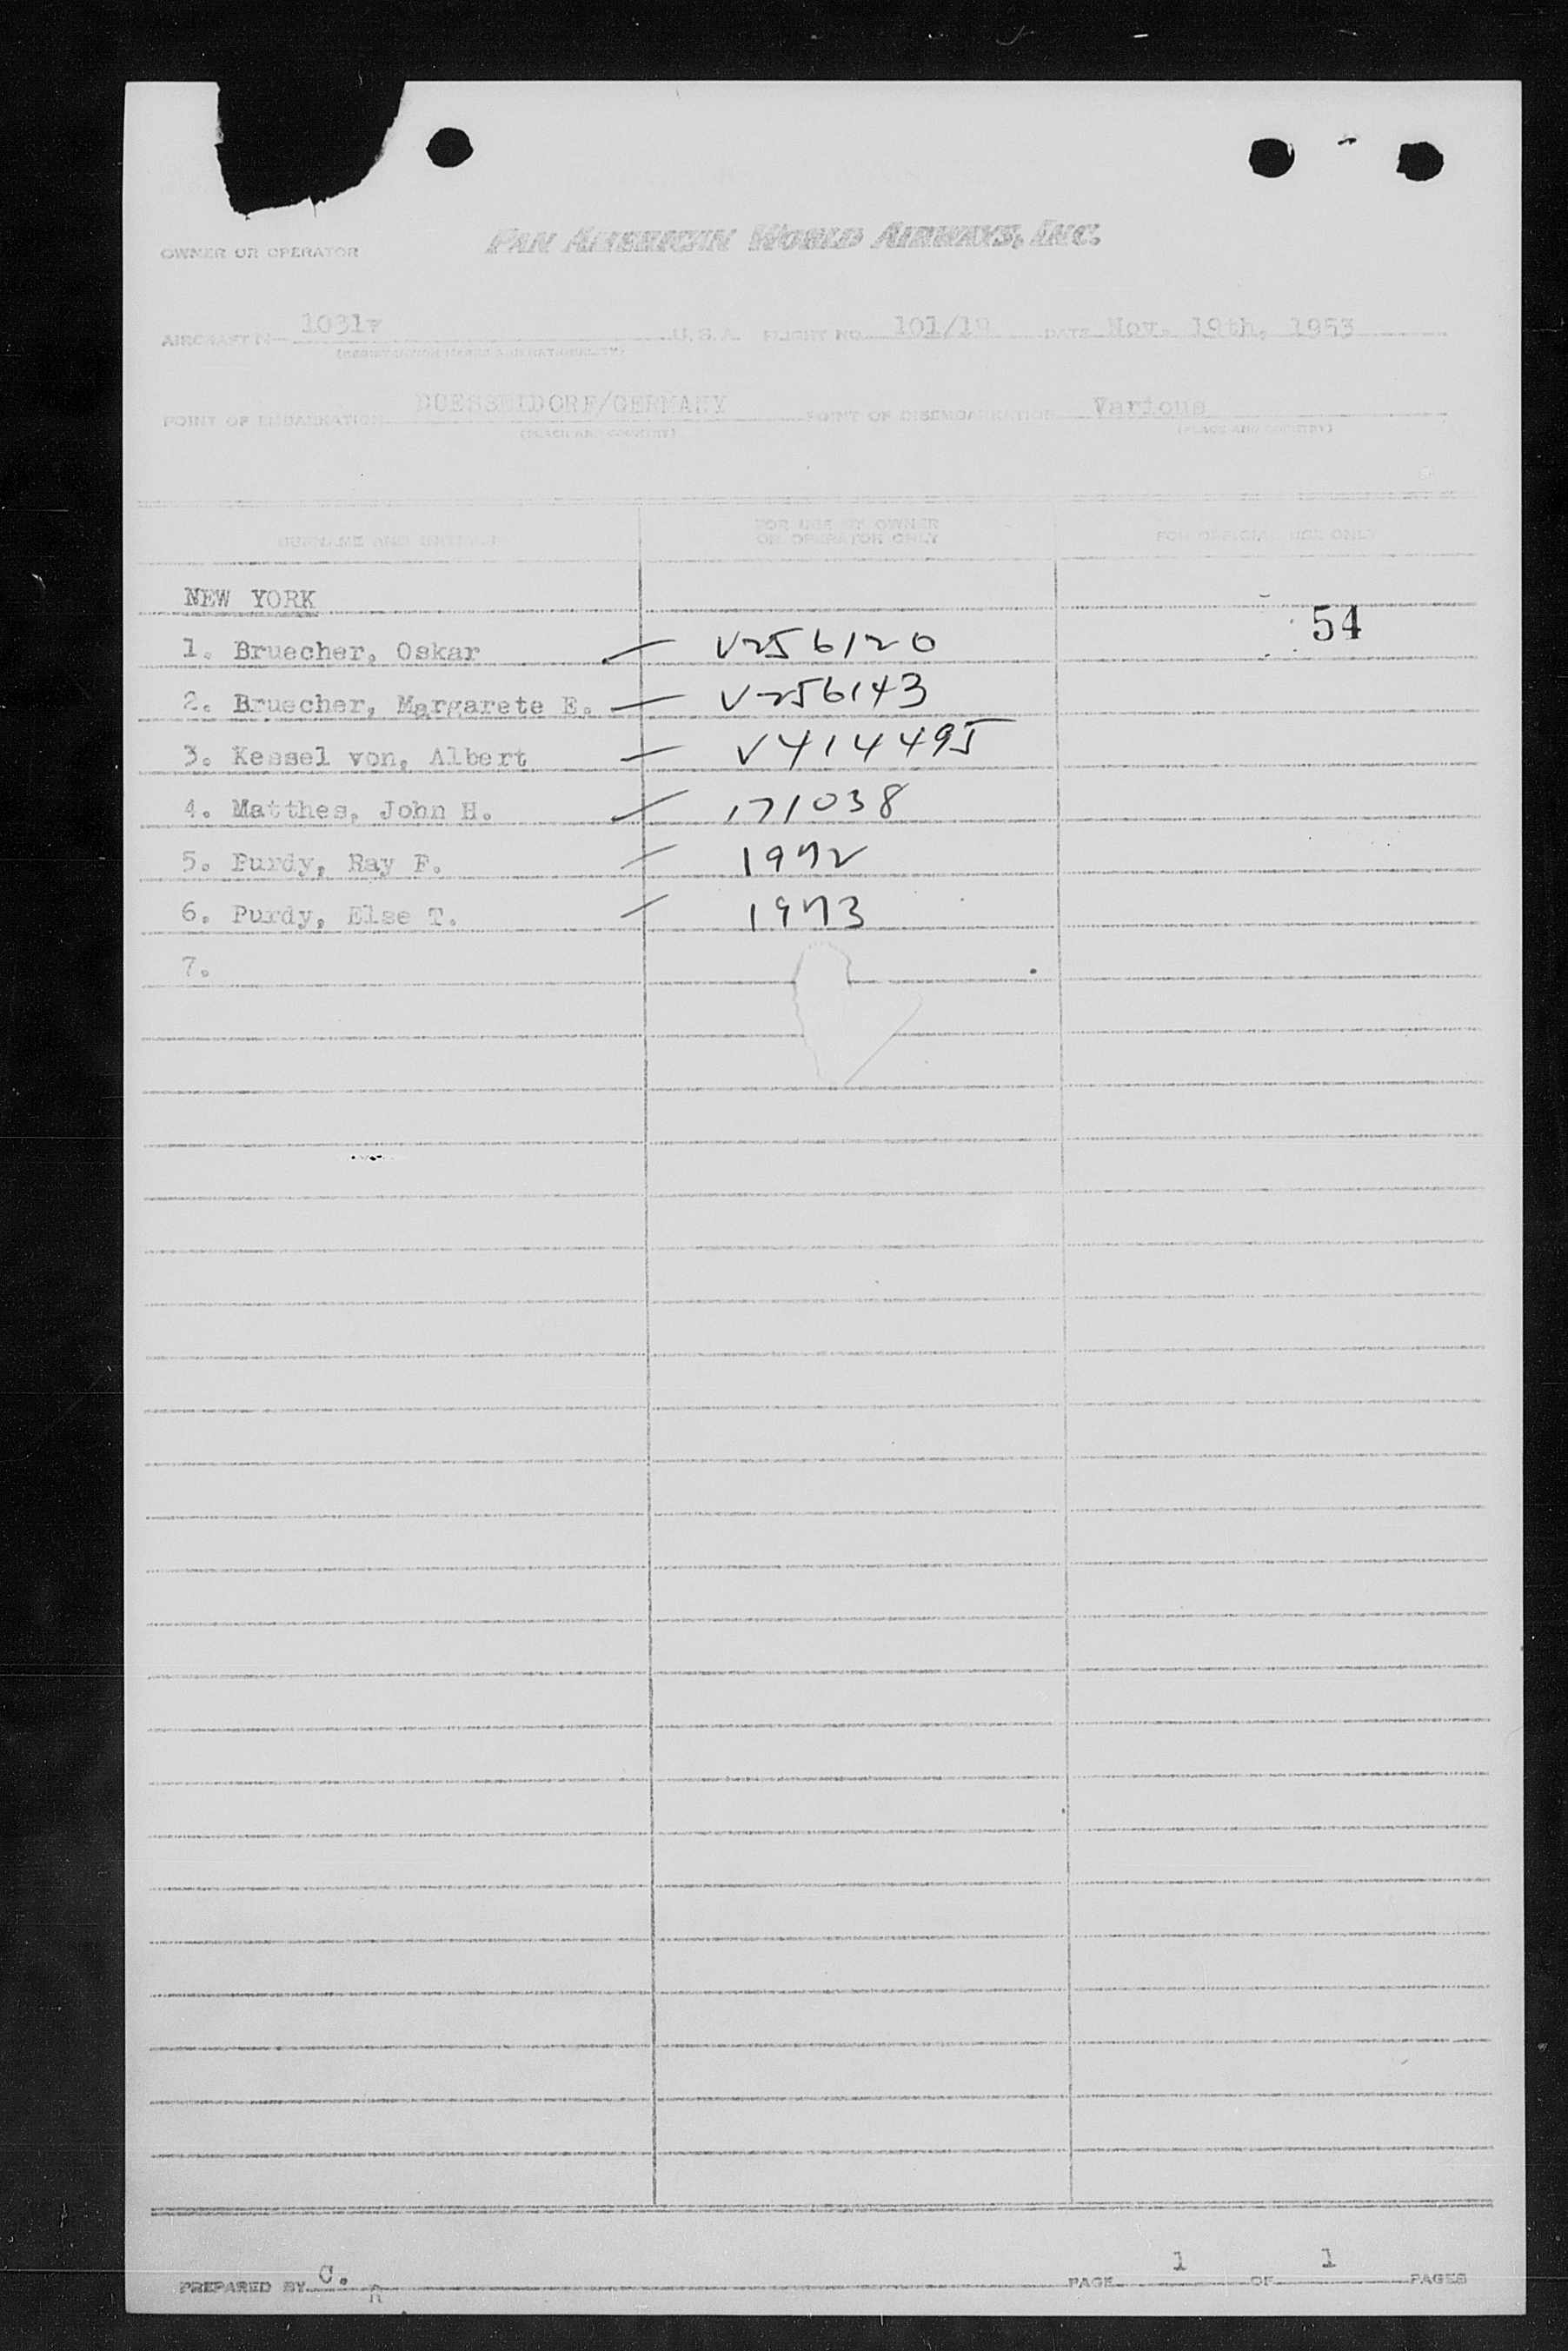 OWNER OR OPERATOR PAN AMERICAN WORLD AIRWAYS, INC.
AIRCRAFT N- 1031V U.S.A. FLIGHT NO. 101/19 DATE Nov. 19th, 1953
(REGISTRATION MARKS AND NATIONALITY)
POINT OF EMBARKATION DUESSELDORF/GERMANY POINT OF DISEMBARKATION Various
(PLACE AND COUNTRY) (PLACE AND COUNTRY)
SURNAME AND INITIALS FOR USE BY OWNER OR OPERATOR ONLY FOR OFFICIAL USE ONLY
NEW YORK
54
1. Bruecher, Oskar — V256120
2. Bruecher, Margarete E. — V256143
3. Kessel von, Albert — V414495
4. Matthes, John H. — 171038
5. Purdy, Ray F. — 1972
6. Purdy, Else T. — 1973
7.
PREPARED BY C. R PAGE 1 OF 1 PAGES